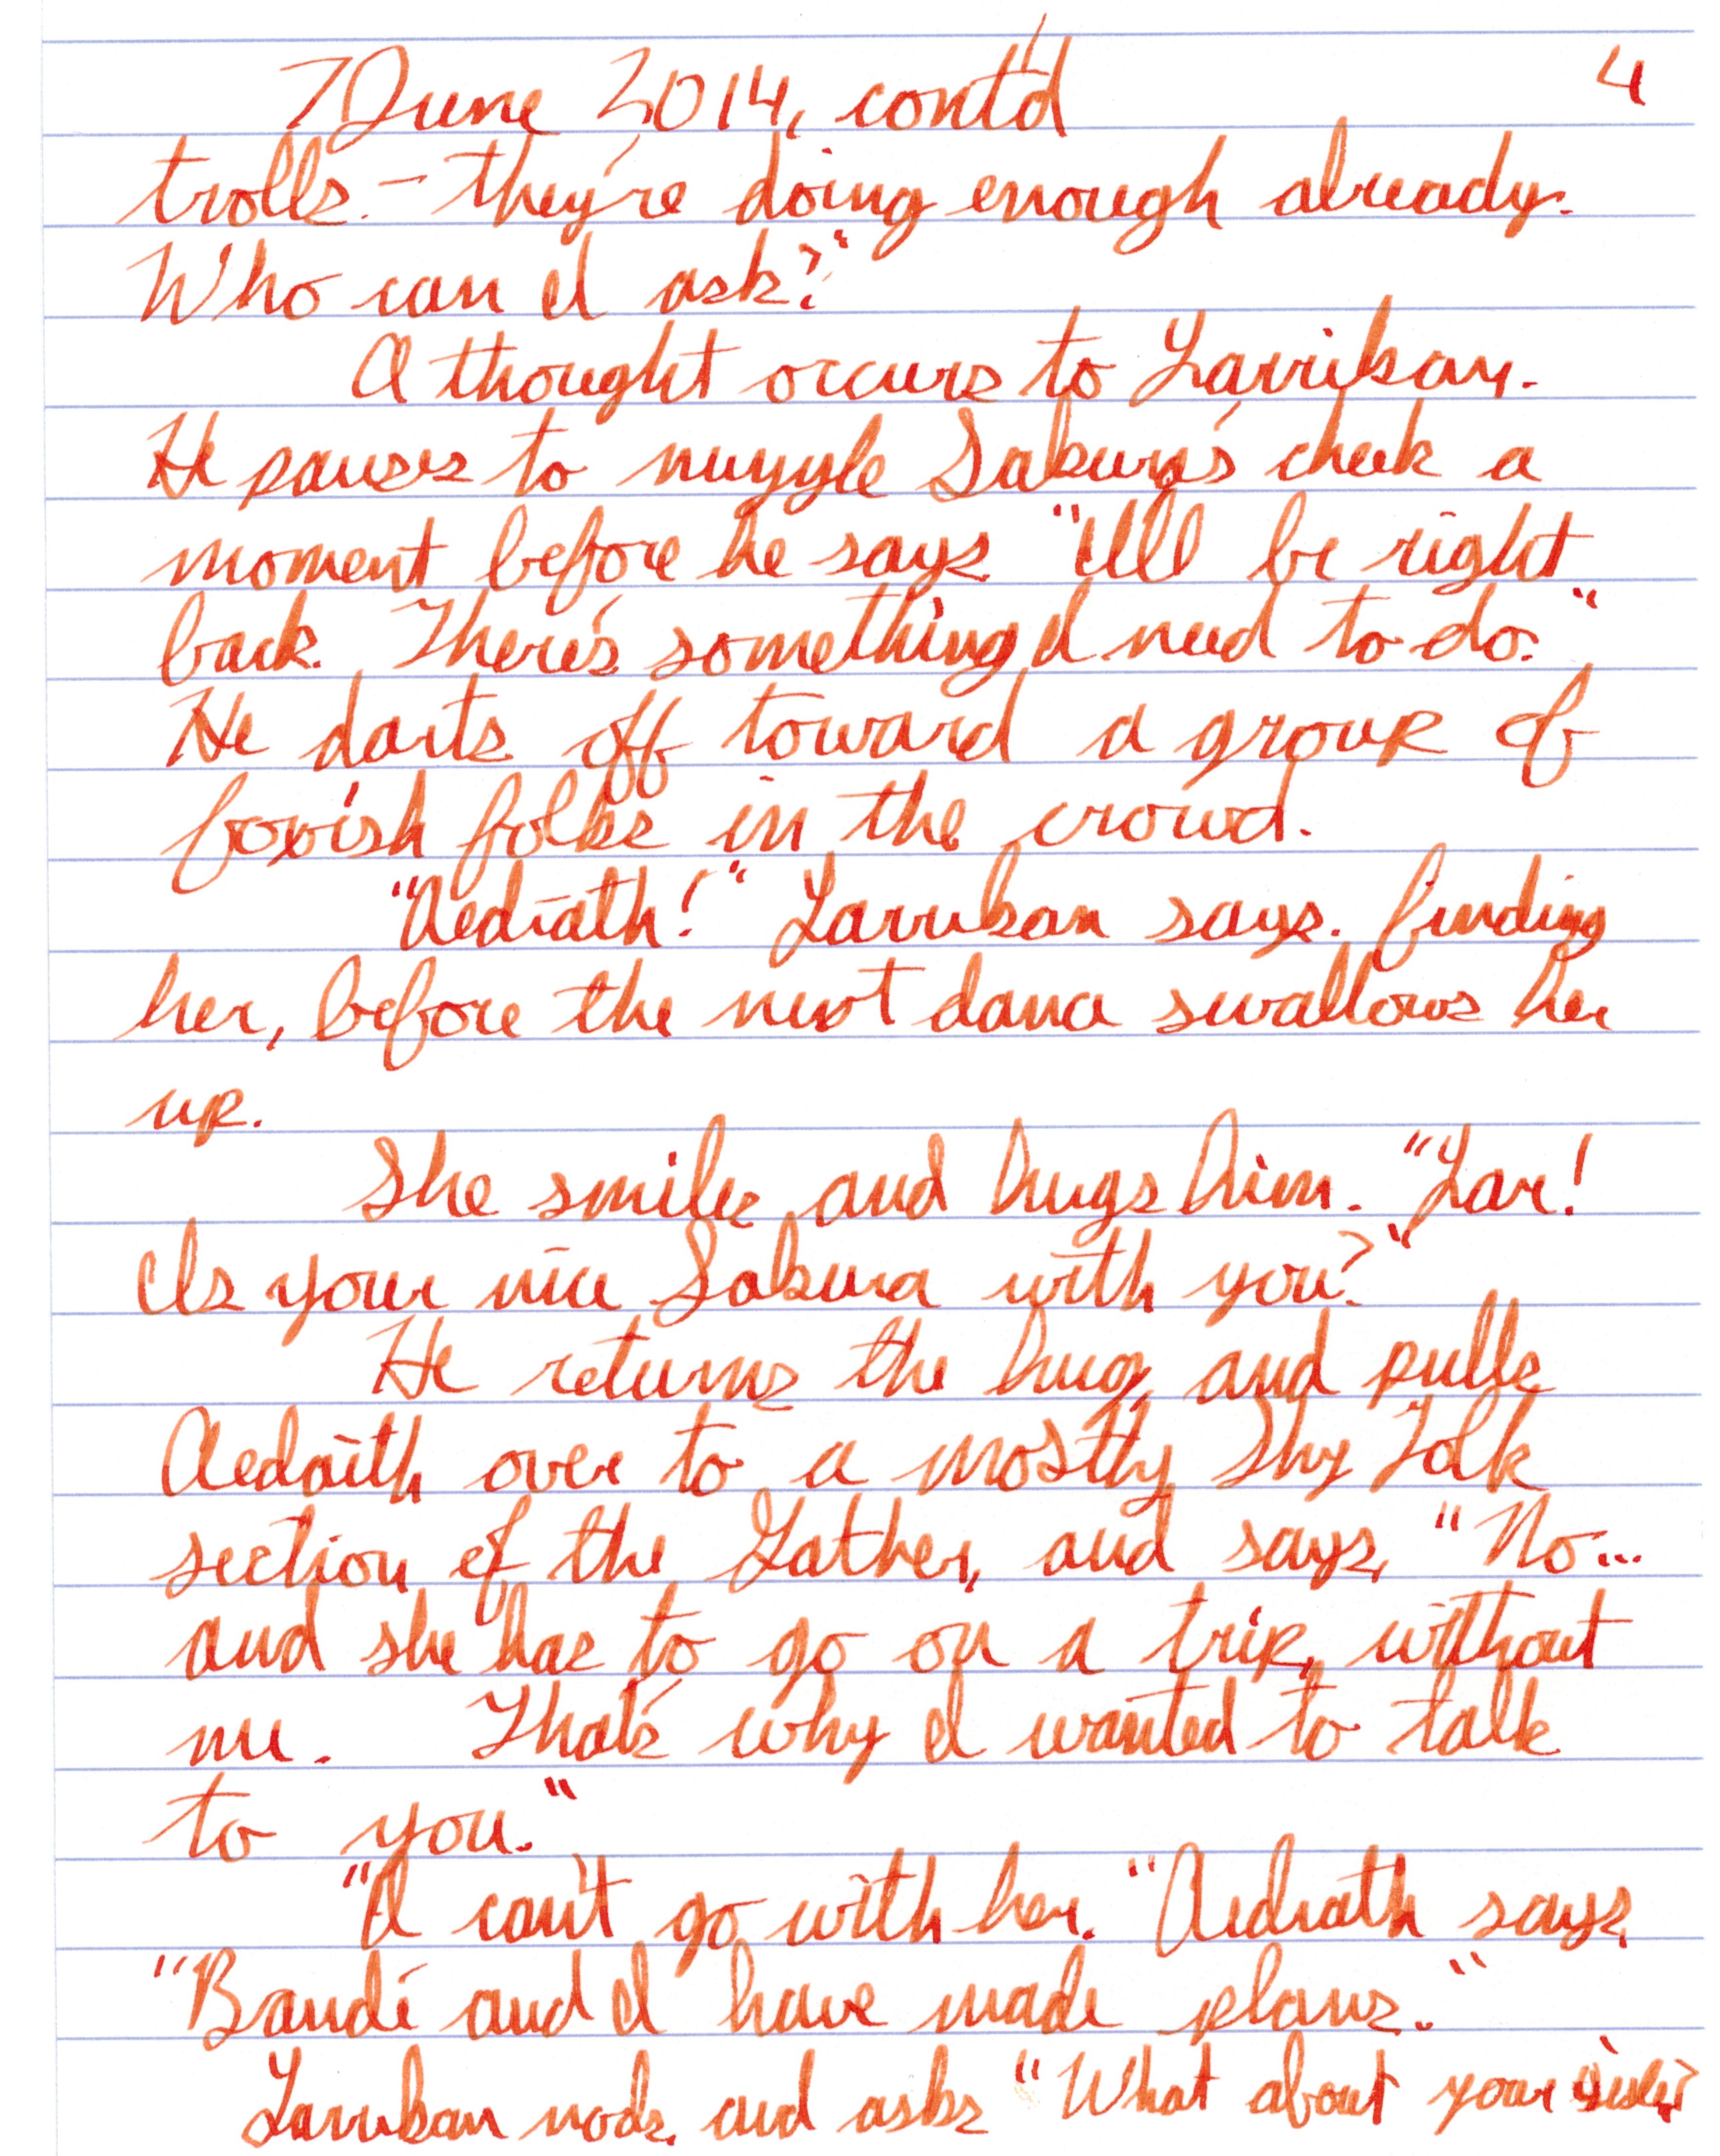 7 June 2014, cont'd 4
trolls – they're doing enough already.
Who can I ask?"
A thought occurs to Larrikan.
He pauses to nuzzle Sakura's cheek a
moment before he says "I'll be right
back. There's something I need to do."
He darts off toward a group of
foxish folks in the crowd.
"Aedraith!" Larrikan says, finding
her, before the next dance swallows her
up.
She smiles and hugs him. "Lar!
Is your nice Sakura with you?"
He returns the hug, and pulls
Aedraith over to a mostly Shy Folk
section of the Gather, and says, "No...
and she has to go on a trip, without
me. That's why I wanted to talk
to you."
"I can't go with her." Aedraith says,
"Bandi and I have made plans."
Larrikan nods, and asks "What about your sister?